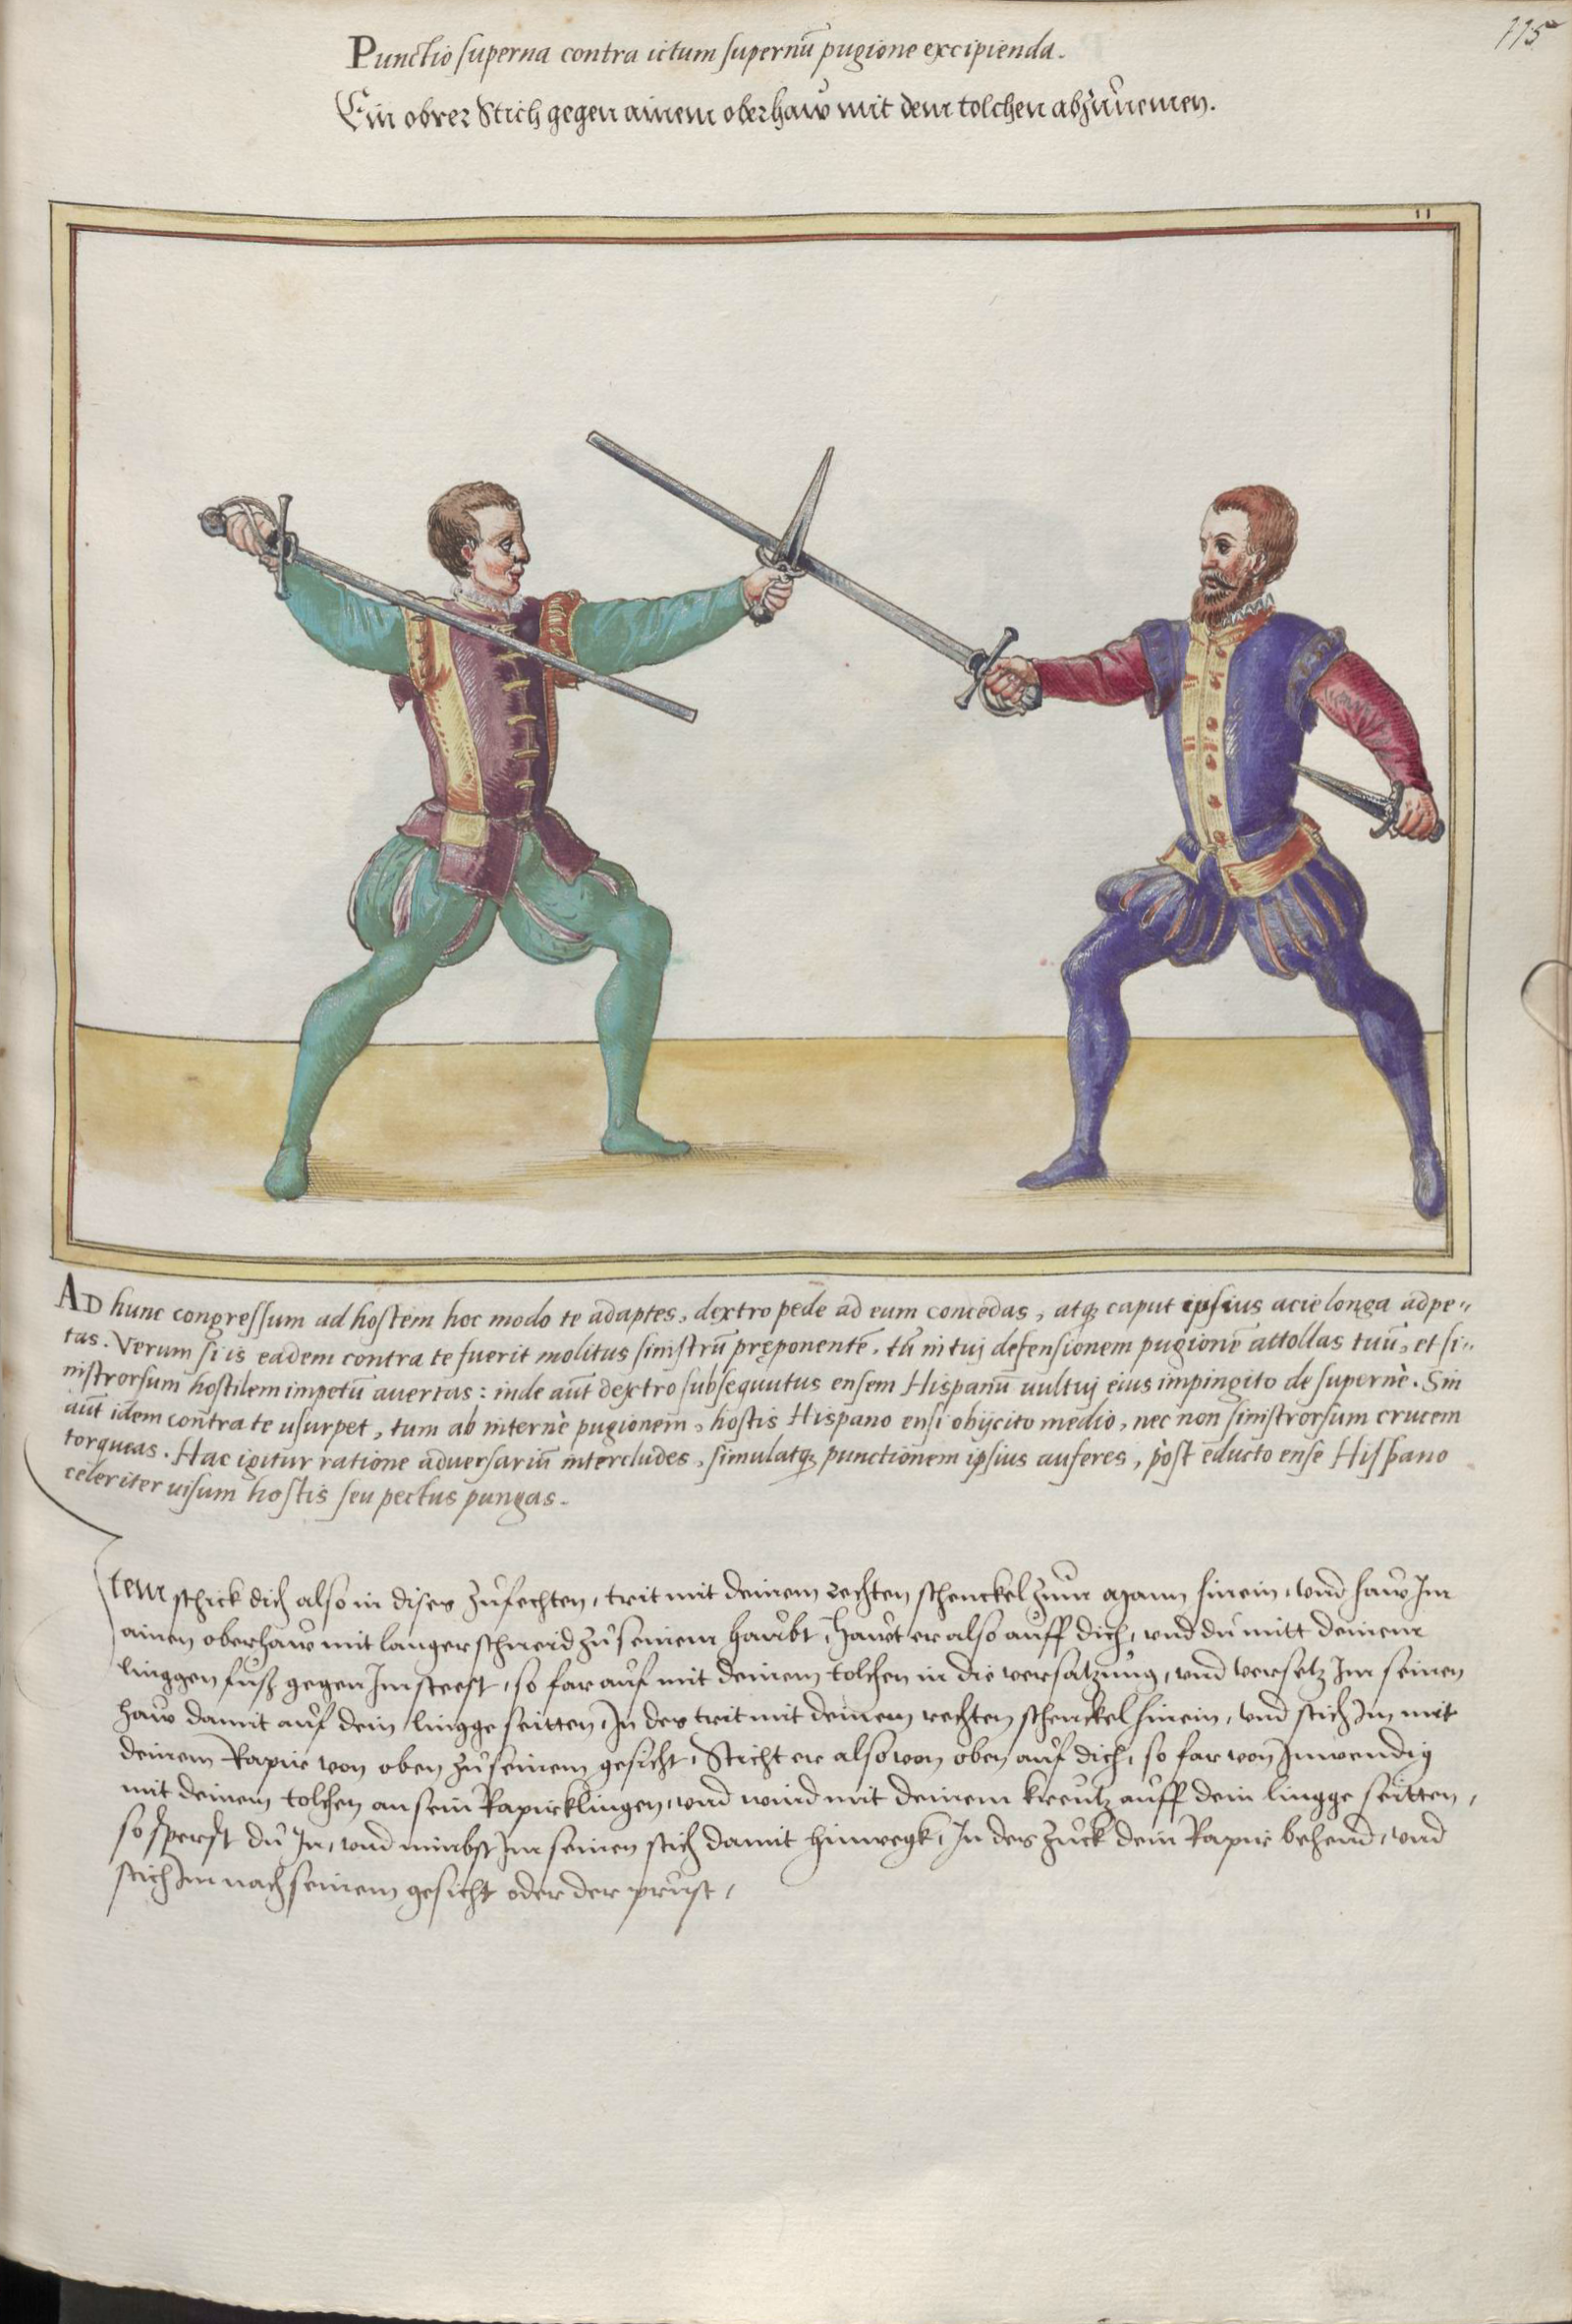 115
Punctio superna contra ictum supernū pugione excipienda.
Ein obrer Stich gegen ainem oberhaw mit dem tolchen abzůnemen.
11
AD hunc congressum ad hostem hoc modo te adaptes, dextro pede ad eum concedas, atq; caput ipsius acie longa adpe„
tas. Verum si is eadem contra te fuerit molitus sinistrū pręponentē, tū in tuj defensionem pugionē attollas tuū, et si„
nistrorsum hostilem impetū auertas: inde aūt dextro subsequutus ensem Hispanū uultuj eius impingito de supernè. Sin
aūt idem contra te usurpet, tum ab internè pugionem, hostis Hispano ensi obijcito medio, nec non sinistrorsum crucem
torqueas. Hac igitur ratione aduersariū intercludes, simulatq; punctionem ipsius auferes, pòst educto ense Hispano
celeriter uisum hostis seu pectus pungas.
Item schick dich also in dises zůfechten, trit mit deinem rechten schenckel zum Mann hinein, vnd haw Im
ainen oberhaw mit langer schneid zů seinem haubt, hawt er also auff dich, vnd du mitt deinem
linggen fůß gegen Im steest, so far auf mit deinem tolchen in die versatzung, vnd versetz Im seinen
haw damit auf dein lingge seitten, In des trit mit deinem rechten schenckel hinein, vnd stich Im mit
deinem Rapier von oben zů seinem gesicht, Sticht er also von oben auf dich, so far von Inwendig
mit deinem tolchen an sein Rapierklingen, vnd wind mit deinem kreutz auff dein lingge seitten,
so sperst du In, vnd nimbst Im seinen stich damit hinwegk, In des zuck dein Rapier behend, vnd
stich Im nach seinem gesicht oder der prust,